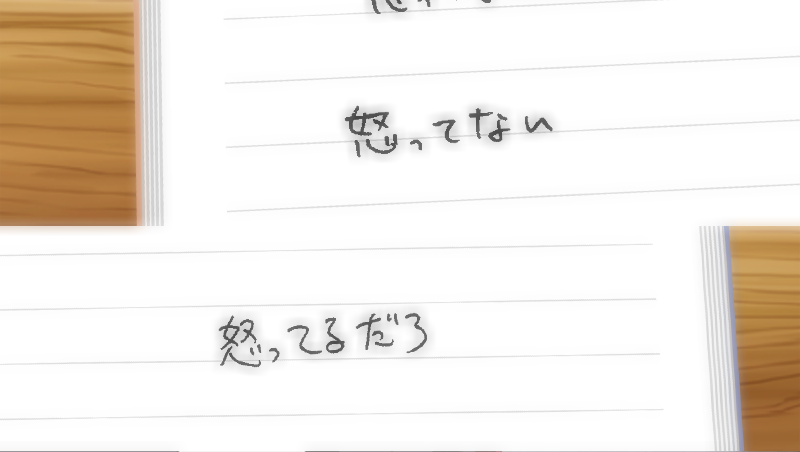 怒ってない
怒ってるだろ